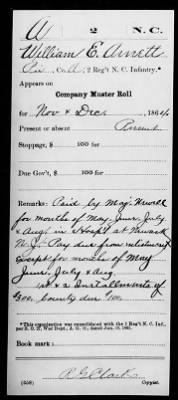 A 2 N.C.
William E. Arnett
Pvt, Co. A, 2 Reg't N. C. Infantry.*
Appears on
Company Muster Roll
for Nov & Dec, 1864
Present or absent Present
Stoppage, $ 100 for
Due Gov't, $ 100 for
Remarks: Paid by Maj. Newell
for months of May, June, July
& Aug, in Hosp'l at Newark
N.J. Pay due from enlistment
except for months of May
June, July & Aug.
1st & 2 Installments of
bounty due
*This organization was consolidated with the 1 Reg't N. C. Inf.,
Book mark:
R G Clark
(358) Copyist.